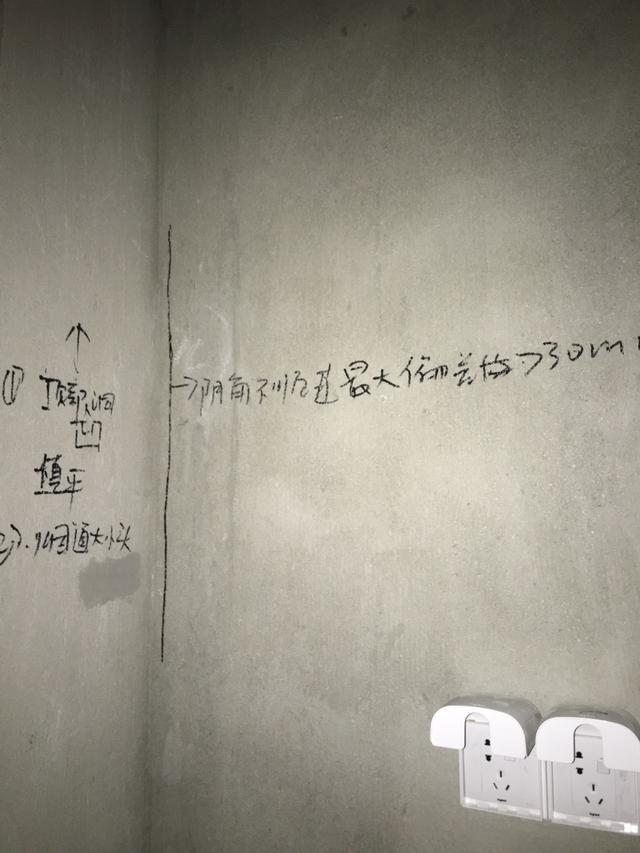 ①
↑
顶部洞
凹
填平
2).烟道大小头
→阴角不顺直 最大偏差 >30mm